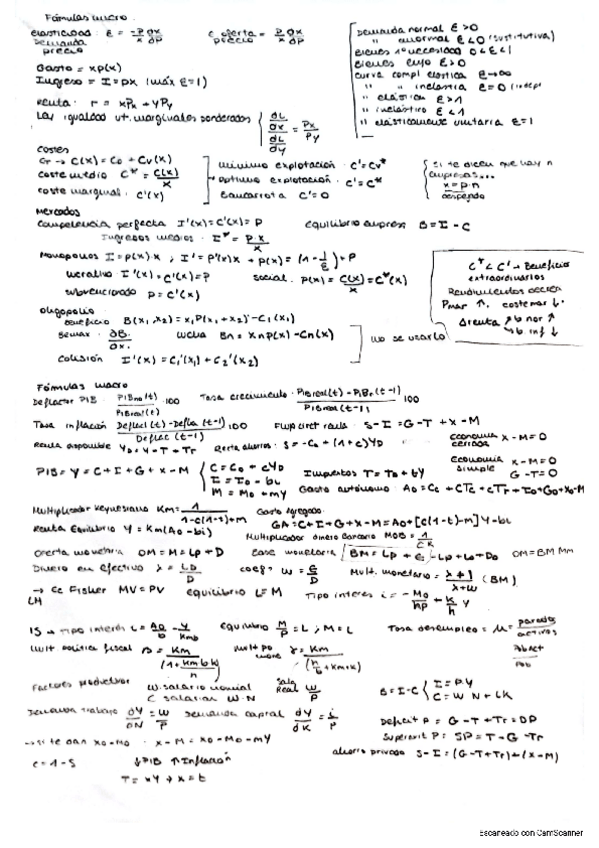 Fórmulas micro.
elasticidad: E = -P/X ∂X/∂P
Demanda
precio
E oferta = P/X ∂X/∂P
precio
Demanda normal E>0
" anormal E<0 (sustitutiva)
bienes 1º necesidad 0<E<1
bienes lujo E>0
curva compl elastica E→∞
" " inelastica E=0
" elástica E>1
" inelástico E<1
" elásticamente unitaria E=1
Gasto = xp(x)
Ingreso = I=px (máx E=1)
Renta: r = xPx + yPy
Ley igualdad ut. marginales ponderadas ∂L/∂x / ∂L/∂y = Px/Py
Costes
CT → C(x) = C0 + Cv(x)
Coste medio C* = C(x)/x
coste marginal: C'(x)
mínimo explotación: C'=Cv*
Óptimo explotación: C'=C*
Bancarrota: C'=0
si te dicen que hay n
empresas...
x=p·n
despejando
Mercados
Competencia perfecta I'(x)=C'(x)=P
equilibrio empresa B=I-C
Ingresos medios: I* = p·x/x
Monopolios I=p(x)·x ; I'=P'(x)x + p(x) = (1-1/E)·P
I'(x)=C'(x)=P
social: P(x)=C(x)/x=C*(x)
subvencionado P=C'(x)
C*<C' → Beneficios
extraordinarios
Rendimientos decrec
Pmar ↑, coste mar ↓
Δrenta ↗ b nor ↑
↘ b inf ↓
Oligopolio
beneficio B(x1,x2) = x1P(x1+x2)-C1(x1)
∂B/∂x1
lucha Bn = XnP(x)-Cn(x)
no se usarlo
Colusión I'(x)=C1'(x1)+C2'(x2)
Fórmulas macro
Deflactor PIB: PIBno(t)/PIBreal(t)·100
Tasa crecimiento: PIBreal(t)-PIBr(t-1)/PIBreal(t-1) 100
Tasa inflación Deflac(t)-Defla(t-1)/Deflac(t-1) 100
Flujo circ renta: S-I=G-T+X-M
Renta disponible YD=Y-T+Tr
Recta ahorros: S=-C0+(1-c)YD
economía cerrada X-M=0
PIB=Y=C+I+G+X-M
C=C0+cYD
I=I0-bi
M=M0+mY
Impuestos T=T0+tY
Economía simple X-M=0
G-T=0
Gasto autónomo: A0=C0+CTc+cTr+I0+G0+X0-M
Multiplicador keynesiano Km=1/1-c(1-t)+m
Gasto Agregado.
GA=C+I+G+X-M=A0+[c(1-t)-m]Y-bi
Renta Equilibrio Y=Km(A0-bi)
Multiplicador dinero bancario MDB=1/CR
oferta monetaria OM=M=LP+D
base monetaria BM=LP+e
OM=BM Mm
Dinero en efectivo λ=LD/D
coef: w=E/D
Mult. monetario=λ+1/λ+w (BM)
→ Ec Fisher MV=PV
LM
equilibrio L=M
Tipo interes i=-M0/hp + k/h Y
IS → Tipo interés i=A0/b - Y/Kmb
equilibrio M/P=L ; M=L
Tasa desempleo=μ=parados/activos
mult política fiscal β=Km/(1+Kmbk/h)
mult po mone γ=Km/(h/b+Km·k)
Pob Act
Pob
Factores productivos
W. salario nominal
C salarial W·N
Sala
Real W/P
B=I-C
I=P·Y
C=W·N+iK
Demanda trabajo ∂Y/∂N=W/P
demanda capital ∂Y/∂K=i/P
Deficit P=G-T+Tr=DP
Superavit P: SP=T-G-Tr
→ si te dan X0-M0 · X-M=X0-M0-mY
ahorro privado S-I=(G-T+Tr)+(X-M)
c=1-s
↓PIB ↑inflación
T=xY → x=t
Escaneado con CamScanner